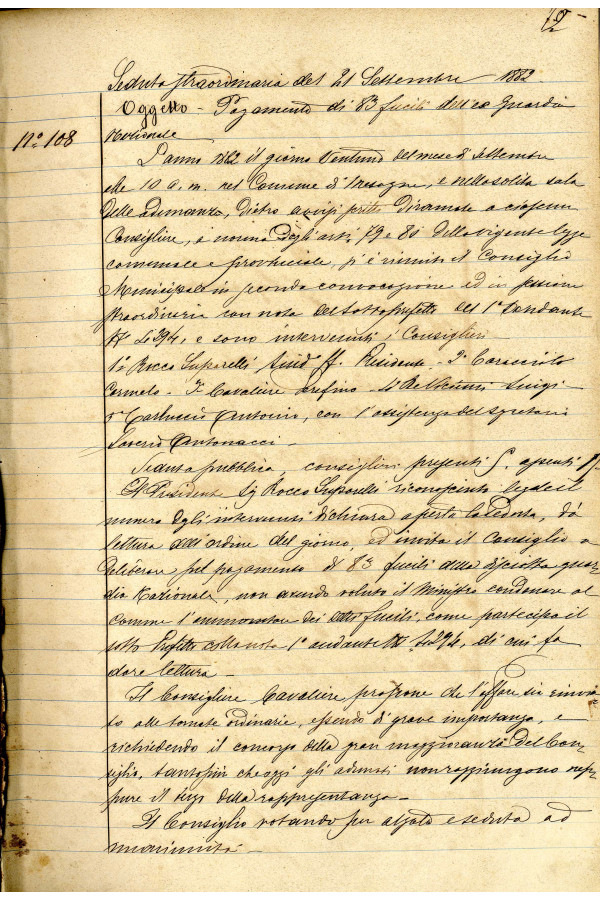 72
Seduta straordinaria del 21 Settembre 1882
Oggetto - Pagamento di 83 fucili dell'ex Guardia
n.° 108
Nazionale
L'anno 1882 il giorno Ventuno del mese di Settembre
alle 10 a. m. nel Comune di Mesagne, e nella solita sala
delle adunanze, dietro avvisi diramati a ciascun
Consigliere, a norma degli arti. 79 e 80 della vigente legge
comunale e provinciale, si è riunito il Consiglio
Municipale in seconda convocazione ed in sessione
straordinaria con nota del Sottoprefetto del 1° andante
N.° e sono intervenuti i Consiglieri
1° Rocco Suparelli Sind. ff. Presidente - 2°
Carmelo - 3° Cavaliere - 4° Luigi
5° Carluccio Antonio, con l'assistenza del Segretario
Saverio Antonacci -
Seduta pubblica, consiglieri presenti 5. assenti
Il Presidente Sig. Rocco Suparelli riconosciuto legale il
numero degli intervenuti dichiara aperta la seduta, dà
lettura dell'ordine del giorno, ed invita il Consiglio a
deliberare pel pagamento di 83 fucili della disciolta guar-
dia Nazionale, non avendo voluto il Ministro condonare al
Comune l'ammontare dei detti fucili, come partecipa il
sotto Prefetto colla nota 1° andante N.° di cui fa
dare lettura -
Il Consigliere Cavaliere propone che l'affare sia rinvia-
to alle tornate ordinarie, essendo di grave importanza, e
richiedendo il concorso della gran maggioranza del Con-
siglio, tantopiù che oggi gli adunati non raggiungono nep-
pure il terzo della rappresentanza -
Il Consiglio votando per alzata e seduta ad
unanimità -